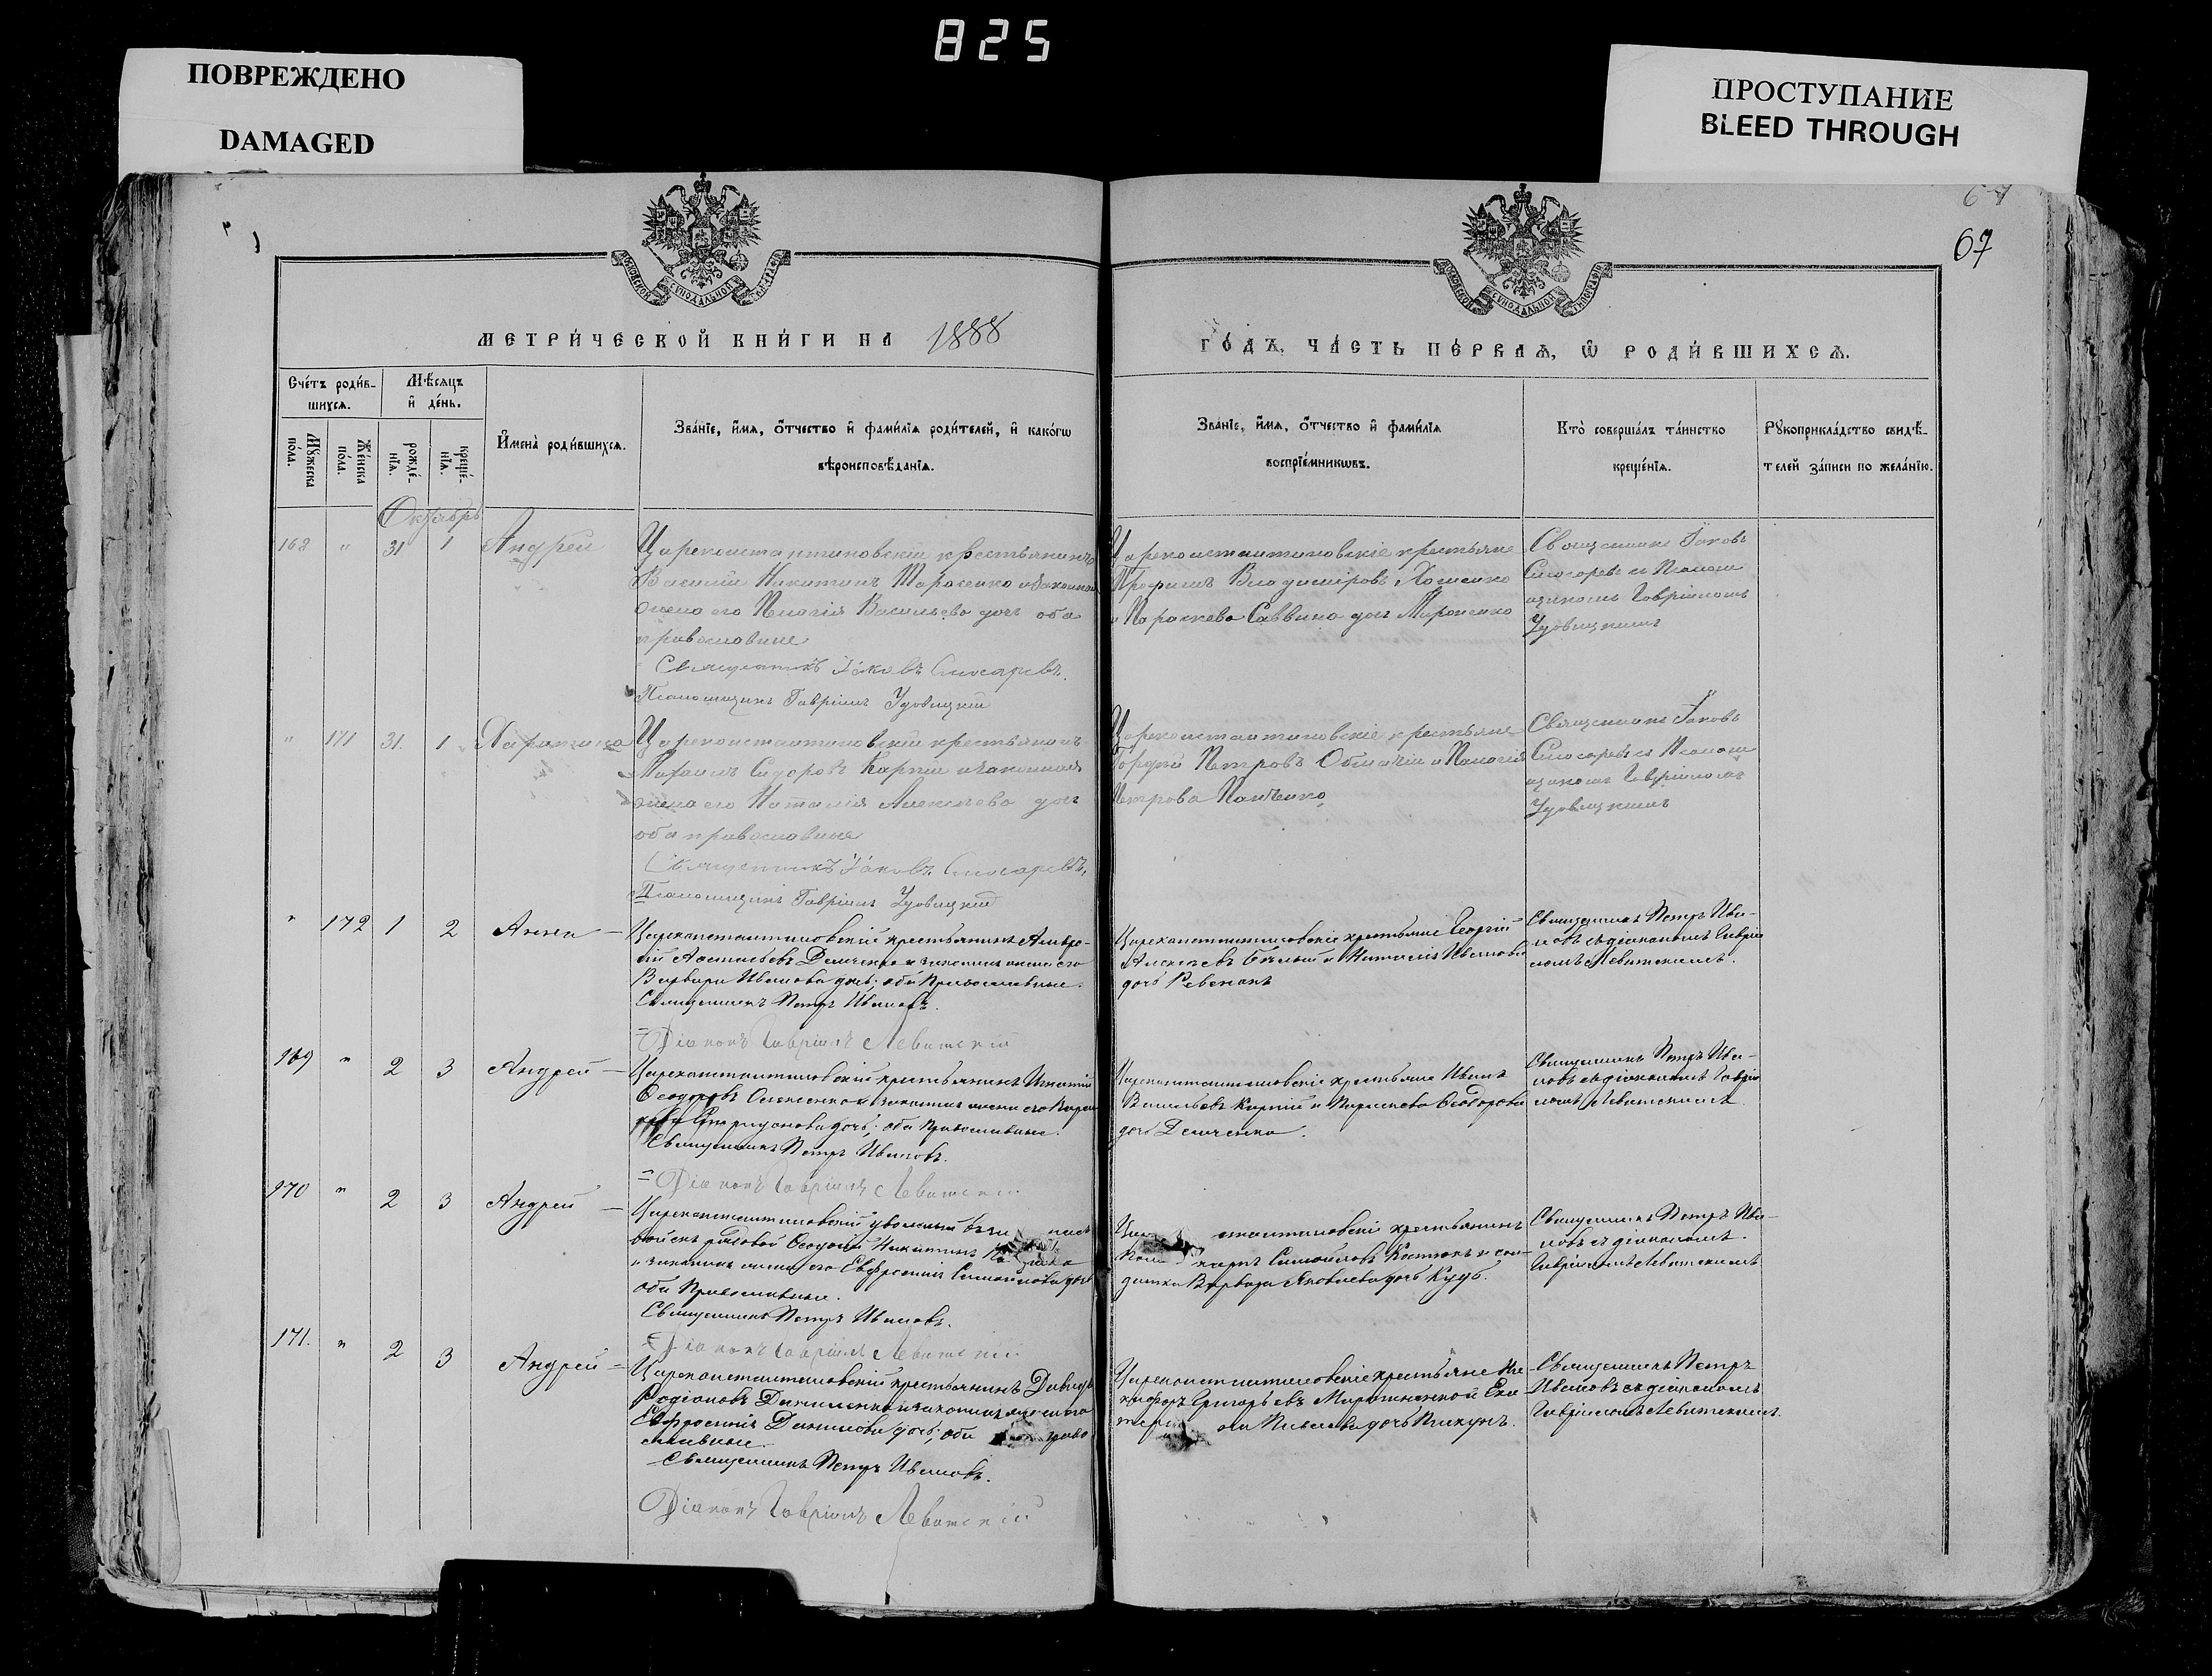 825
ПОВРЕЖДЕНО
DAMAGED
ПРОСТУПАНИЕ
BLEED THROUGH
67
МЕТРИ́ЧЕСКОЙ КНИ́ГИ НА 1888
ГО́ДЪ, ЧА́СТЬ ПЕ́РВАЯ, Ѡ РОДИ́ВШИХСЯ.
Сче́тъ роди́в-
шихся.
Мѣ́сяцъ
и де́нь.
Мꙋ́жеска
по́ла.
Же́нска
по́ла.
рожде́-
нїѧ.
креще́-
нїѧ.
Имена̀ роди́вшихся.
Зва́нїе, и́мя, о́тчество и фами́лїя роди́телей, и како́гѡ
вѣроисповѣ́данїя.
Зва́нїе, и́мя, о́тчество и фами́лїя
воспрїе́мникѡвъ.
Кто̀ соверша́лъ та́инство
креще́нїя.
Рꙋкоприкла́дство свидѣ́-
телей за́писи по жела́нїю.
Октябрь
168 " 31 1 Андрей
Цареконстантиновскій крестьянинъ
Василій Никитинъ Тарасенко и законная
жена его Пелагія Васильева дочь оба
православные
Священникъ Іаковъ Слюсаревъ.
Псаломщикъ Гавріилъ Удовицкій
Цареконстантиновскіе крестьяне
Трофимъ Владиміровъ
и Параскева Саввина дочь Мироненко
Священникъ Іаковъ
Слюсаревъ съ Псалом
щикомъ Гавріиломъ
Удовицкимъ
" 171 31. 1
Цареконстантиновскій крестьянинъ
Михаилъ Сидоровъ Карпій и законная
жена его Наталія Алексѣева дочь
оба православные
Священникъ Іаковъ Слюсаревъ,
Псаломщикъ Гавріилъ Удовицкій
Цареконстантиновскіе крестьяне
Гордѣй Петровъ и Пелагія
Петрова Панченко
Священникъ Іаковъ
Слюсаревъ съ Псалом
щикомъ Гавріиломъ
Удовицкимъ
" 172 1 2 Анна —
Цареконстантиновскій крестьянинъ Андре-
ій Демченко и законная жена его
Варвара Иванова дочь; оба Православные.
Священникъ Петръ Ивановъ.
Діаконъ Гавріилъ Левитскій
Цареконстантиновскіе крестьяне Георгій
Алексѣевъ Бѣлый и Наталія Иванова
дочь Ревенокъ
Священникъ Петръ Ива-
новъ съ діакономъ Гавріи
ломъ Левитскимъ.
169 " 2 3 Андрей —
Цареконстантиновскій крестьянинъ Игнатій
Ѳеодоровъ и законная жена его Парас
кева Спиридонова дочь; оба Православные.
Священникъ Петръ Ивановъ.
Діаконъ Гавріилъ Левитскій
Цареконстантиновскіе крестьяне Иванъ
Васильевъ Карпій и Параскева Ѳеодорова
дочь Демченко.
Священникъ Петръ Ива-
новъ съ діакономъ Гавріи
ломъ Левитскимъ
170 " 2 3 Андрей —
Цареконстантиновскій уволенный
войскъ рядовой Ѳеодосій Никитинъ
и законная жена его Евфросинія Самойлова дочь
оба Православные.
Священникъ Петръ Ивановъ.
Діаконъ Гавріилъ Левитскій
константиновскій крестьянинъ
Самойловъ Костюкъ и сол-
датка Варвара Яковлева дочь Куцъ.
Священникъ Петръ Ива-
новъ съ діакономъ
Гавріиломъ Левитскимъ
171. " 2 3 Андрей —
Цареконстантиновскій крестьянинъ Давидъ
Родіоновъ Даниленко и законная жена его
Евфросинія Данилова дочь; оба право
славные.
Священникъ Петръ Ивановъ.
Діаконъ Гавріилъ Левитскій
Цареконстантиновскіе крестьяне Ни
кифоръ Григорьевъ и Ека
тери на Павлова дочь Пикунъ.
Священникъ Петръ
Ивановъ съ діакономъ
Гавріиломъ Левитскимъ.